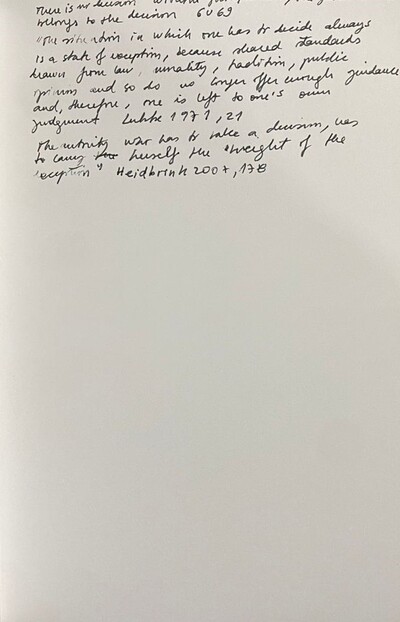 There is no decision without
belongs to the decision 60 69
"The situation in which one has to decide always
is a state of exception, because shared standards
drawn from law, morality, tradition, public
opinion and so do no longer offer enough guidance
and, therefore, one is left to one's own
judgment Lubbe 1971, 21
The authority who has to take a decision, has
to carry herself the "weight of the
exception" Heidbrink 2007, 178